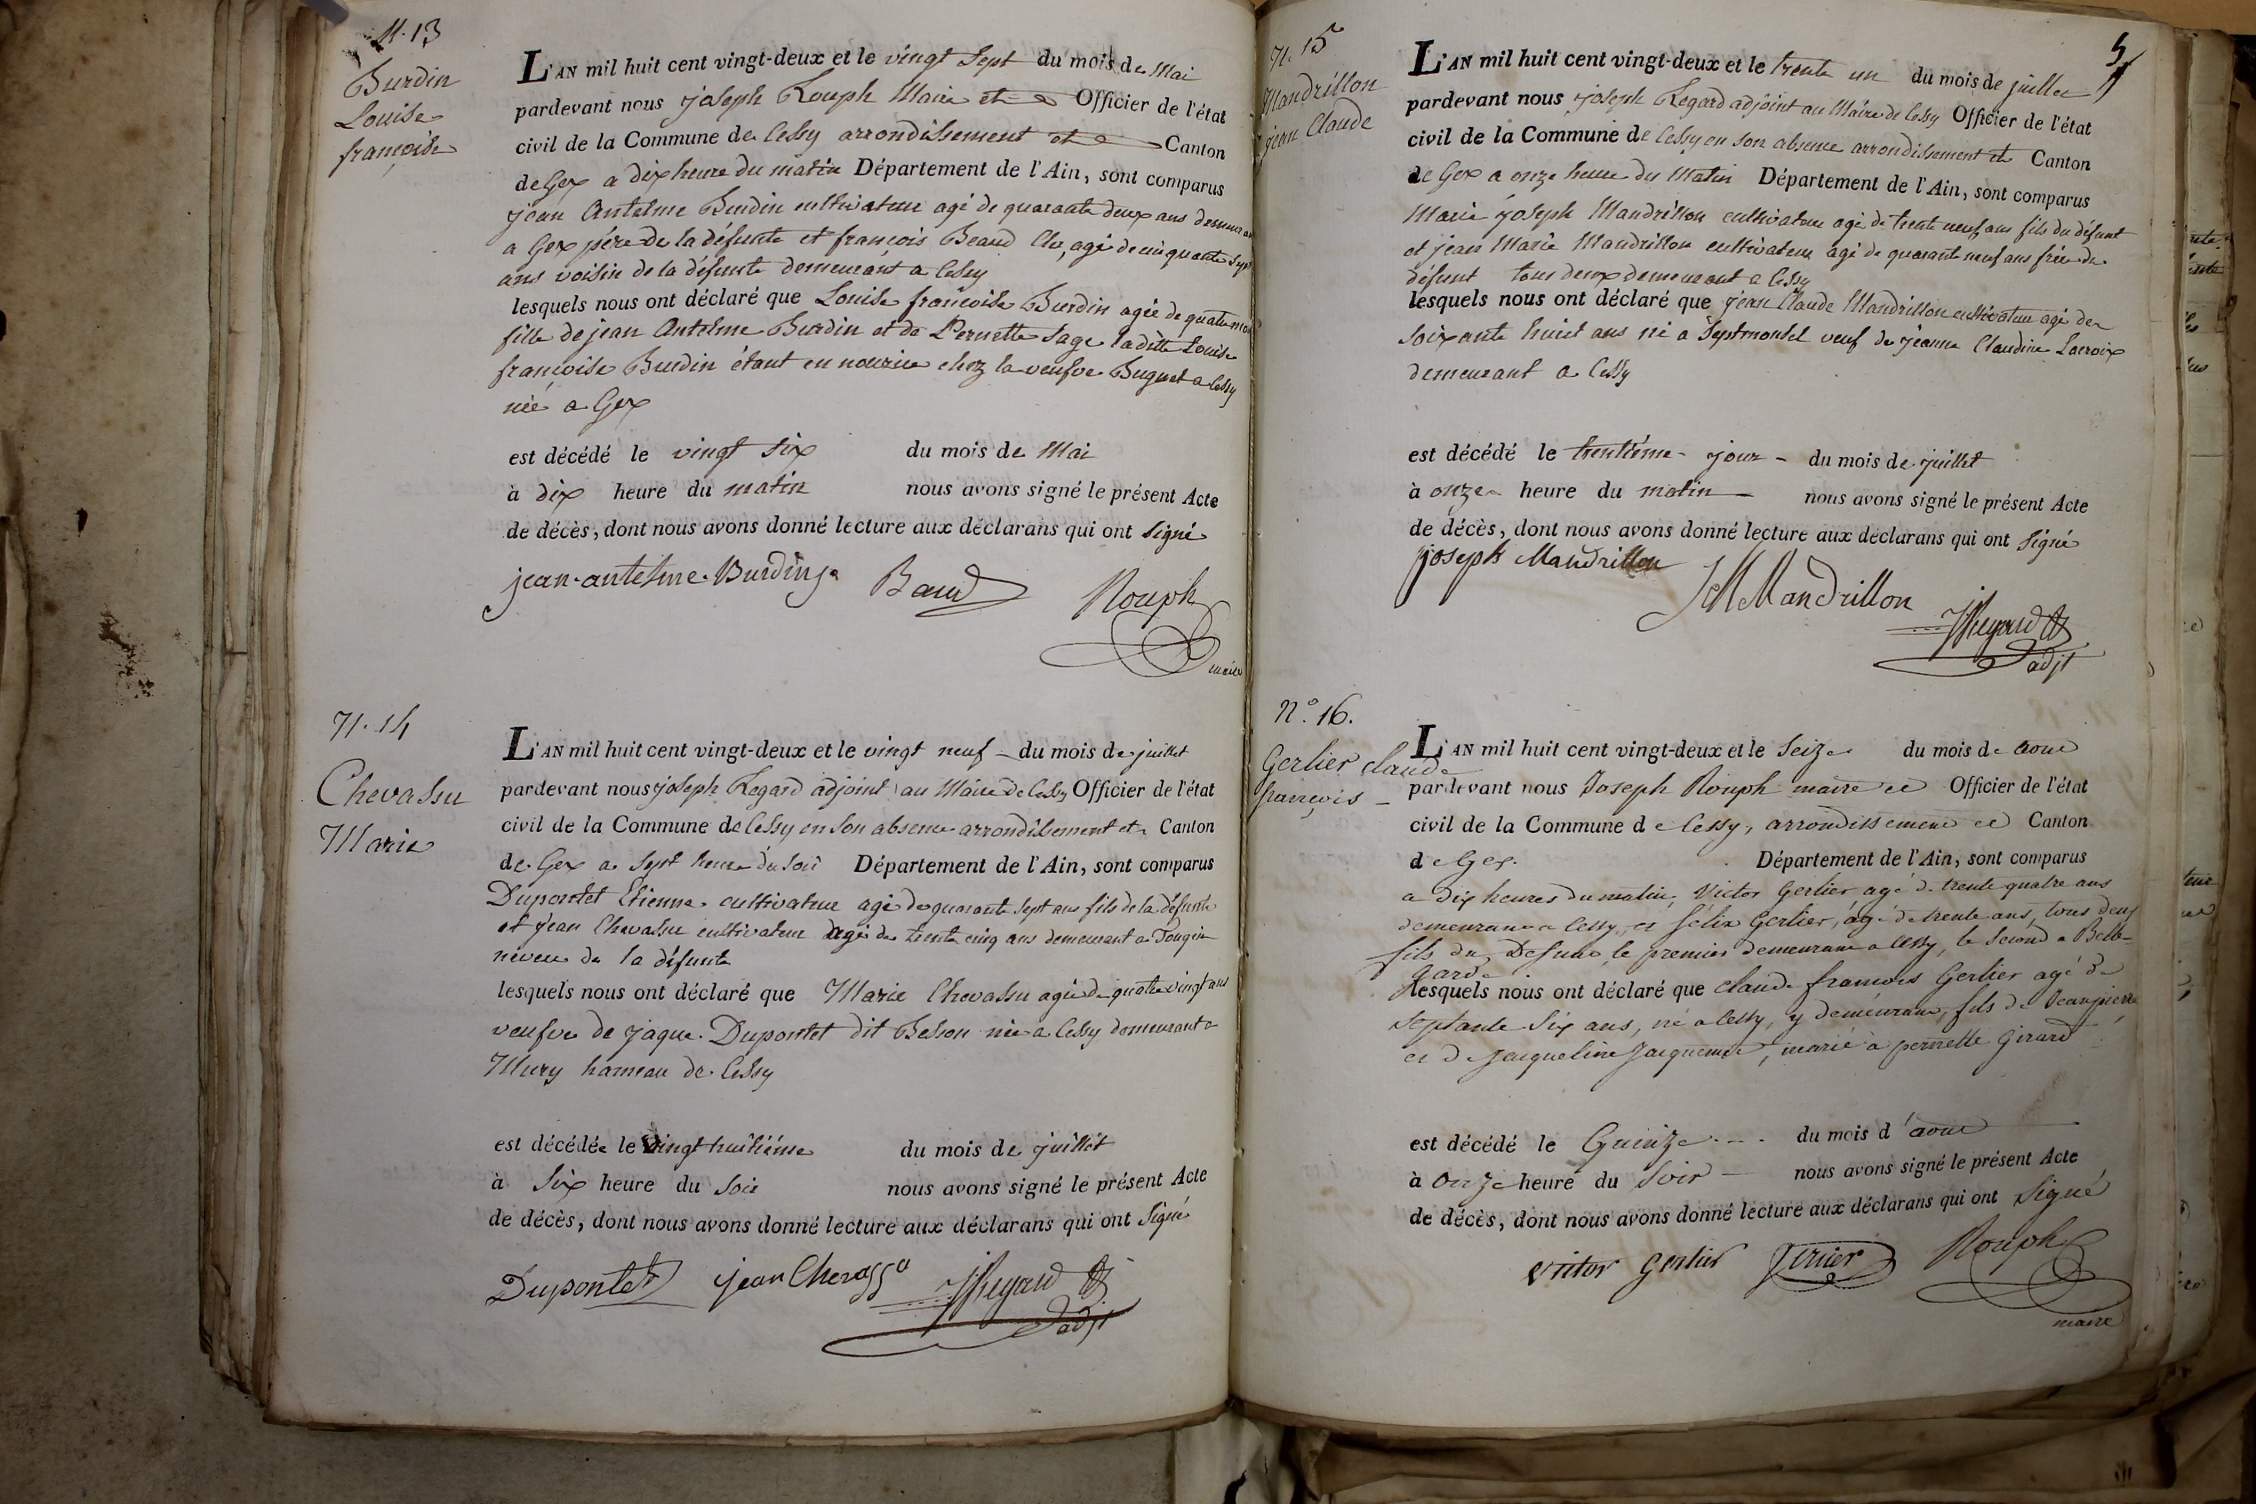 N. 13
Burdin
Louise
françoise
L'AN mil huit cent vingt-deux et le vingt Sept du mois de Mai
pardevant nous joseph Rouph Maire et Officier de l'état
civil de la Commune de Cessy arrondissement et Canton
de Gex a dix heure du matin Département de l'Ain, sont comparus
jean Antelme Burdin cultivateur agé de quarante deux ans demeurant
a Gex père de la défunte et françois Beaud agé de cinquante sept
ans voisin de la défunte demeurant a Cessy
lesquels nous ont déclaré que Louise françoise Burdin agée de quatre mois
fille de jean Antelme Burdin et de Pernette Sage laditte Louise
françoise Burdin étant en nourice chez la veufve Buguet a Cessy
née a Gex
est décédé le vingt six du mois de Mai
à dix heure du matin nous avons signé le présent Acte
de décès, dont nous avons donné lecture aux déclarans qui ont signé
jean-antelme-Burdin Baud Rouph
maire
N. 14
Chevassu
Marie
L'AN mil huit cent vingt-deux et le vingt neuf du mois de juillet
pardevant nous joseph Regard adjoint au Maire de Cessy Officier de l'état
civil de la Commune de Cessy en Son absence arrondissement et Canton
de Gex a Sept heure du Soir Département de l'Ain, sont comparus
Dupontet Etienne cultivateur agé de quarante Sept ans fils de la défunte
et jean Chevassu cultivateur agé de trente cinq ans demeurant a Tougin
neveu de la défunte
lesquels nous ont déclaré que Marie Chevassu agée de quatre vingt ans
veufve de jaque Dupontet dit Besson née a Cessy demeurant a
Mury hameau de Cessy
est décédée le vingt huitiéme du mois de juillet
à Six heure du Soir nous avons signé le présent Acte
de décès, dont nous avons donné lecture aux déclarans qui ont Signé
Dupontet jean Chevassu JHRegard
adjt
5
N. 15
Mandrillon
jean Claude
L'AN mil huit cent vingt-deux et le trente un du mois de juillet
pardevant nous joseph Regard adjoint au Maire de Cessy Officier de l'état
civil de la Commune de Cessy en son absence arrondissement et Canton
de Gex a onze heure du Matin Département de l'Ain, sont comparus
Marie joseph Mandrillon cultivateur agé de trente neuf ans fils du défunt
et jean Marie Mandrillon cultivateur agé de quarante neuf ans frère du
défunt tous deux demeurant a Cessy
lesquels nous ont déclaré que jean Claude Mandrillon cultivateur agé de
soixante huit ans né a Septmonsel veuf de jeanne Claudine Lacroix
demeurant a Cessy
est décédé le trentiéme jour du mois de juillet
à onze heure du matin nous avons signé le présent Acte
de décès, dont nous avons donné lecture aux déclarans qui ont Signé
joseph Mandrillon
JM Mandrillon JHRegard
adjt
N.° 16.
Gerlier claude
françois
L'AN mil huit cent vingt-deux et le Seize du mois de aout
pardevant nous Joseph Rouph maire et Officier de l'état
civil de la Commune de Cessy, arrondissement et Canton
de Gex. Département de l'Ain, sont comparus
a dix heures du matin, Victor Gerlier agé de trente quatre ans
demeurant a Cessy, et félix Gerlier, agé de trente ans, tous deux
fils du Defunt, le premier demeurant a Cessy, le Second a Belle-
garde
lesquels nous ont déclaré que claude francois Gerlier agé de
septante Six ans, né a Cessy, y demeurant, fils de Jean pierre
et de jacqueline Jacquemet, marié à pernette Girard
est décédé le Quinze du mois d'aout
à Onze heure du Soir nous avons signé le présent Acte
de décès, dont nous avons donné lecture aux déclarans qui ont Signé
Victor Gerlier Rouph
maire